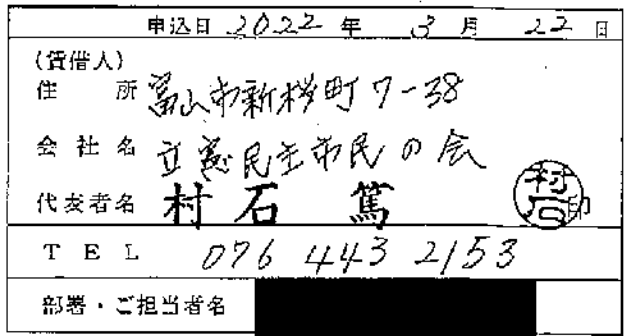 申込日 2022 年 3 月 22 日
(賃借人)
住 所 富山市新桜町7-38
会社名 立憲民主市民の会
代表者名 村石 篤 村石 印
TEL 076 443 2153
部署・ご担当者名